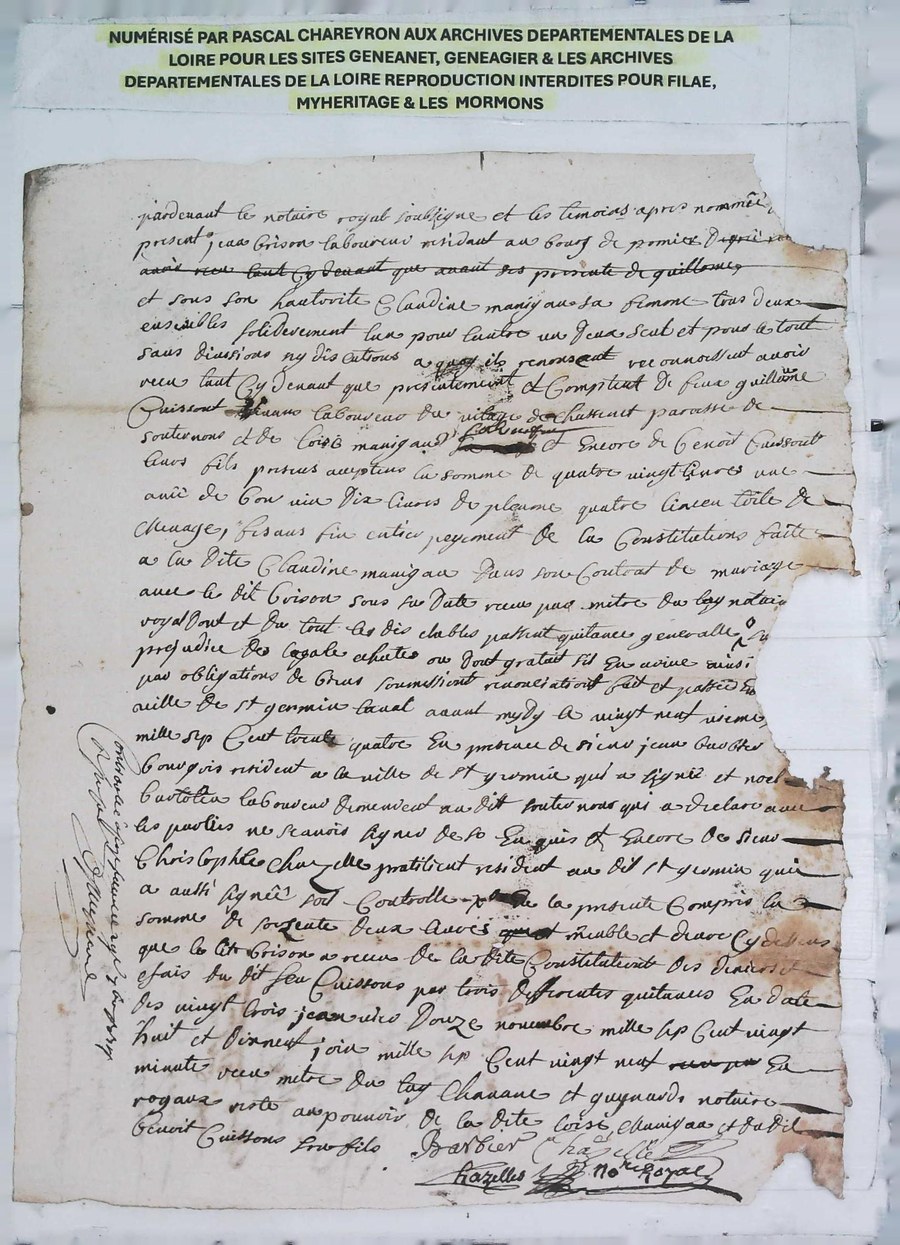 NUMÉRISÉ PAR PASCAL CHAREYRON AUX ARCHIVES DEPARTEMENTALES DE LA
LOIRE POUR LES SITES GENEANET, GENEAGIER & LES ARCHIVES
DEPARTEMENTALES DE LA LOIRE REPRODUCTION INTERDITES POUR FILAE,
MYHERITAGE & LES MORMONS
pardevant le notaire royal soubsigne et les temoins apres nommée
present jean brison laboureur residant au bourg de pomier
avoir receu tant cydevant que avant des presente de guillome
et sous son hautorite Claudine manigau sa femme tous deux
ensembles solidement lun pour lautre un deux seul et pour le tout
sans diuissions ny discutions a quoy ils renonsent reconnoissent avoir
receu tant Cydevant que presentement et Comptent de feux guillaume
Cuissont laboureur du vilage de paroisse de
souternons et de loise manigaud et Encore de benoit Cuissont
leurs fils presens acceptens la somme de quatre vingt livres une
anée de bon vin dix livres de pleume quatre linceu toile de
menage, faisans fin entier payement de la Constitutions faite
a la dite Claudine manigau dans son Contrat de mariage
avec le dit brison sous sa date receu par metre du lay notaire
royal dont et du tout les dis passent quitance generalle
prejudice de legale ou dont gratuit sil En arive ainsi
par obligations de biens soumissiont renonciationt fait et passé En
ville de st germin laval avant mydy le vingt neuf
mille sep Cent trente quatre En presence de sieur jean barbier
bourgois resident a la ville de st germin qui a signé et noel
laboureur demeurent au dit souternons qui a declare avec
les parties ne scavoir signer de so Enquis et Encore de sieur
Christophle Chazelle pratitient resident au dit st germin qui
a aussi signée soit Controlle la presente Compris la
somme de soizente deux livres meuble et denre Cydessus
que le dit brison a receu de la dite Constitutiont des deniers et
du dit feu Cuissons par trois differentes quitances En date
des vingt trois janvies douze novembre mille sep Cent vingt
huit et dixneuf join mille sep Cent vingt neuf En
minute receu metre du lay Chavane et guynard notaire
royaux reste au pouvoir de la dite loise Manigau et du dit
benoit Cuissons son fils Barbier Chazelle
Chazelles Nore Royal